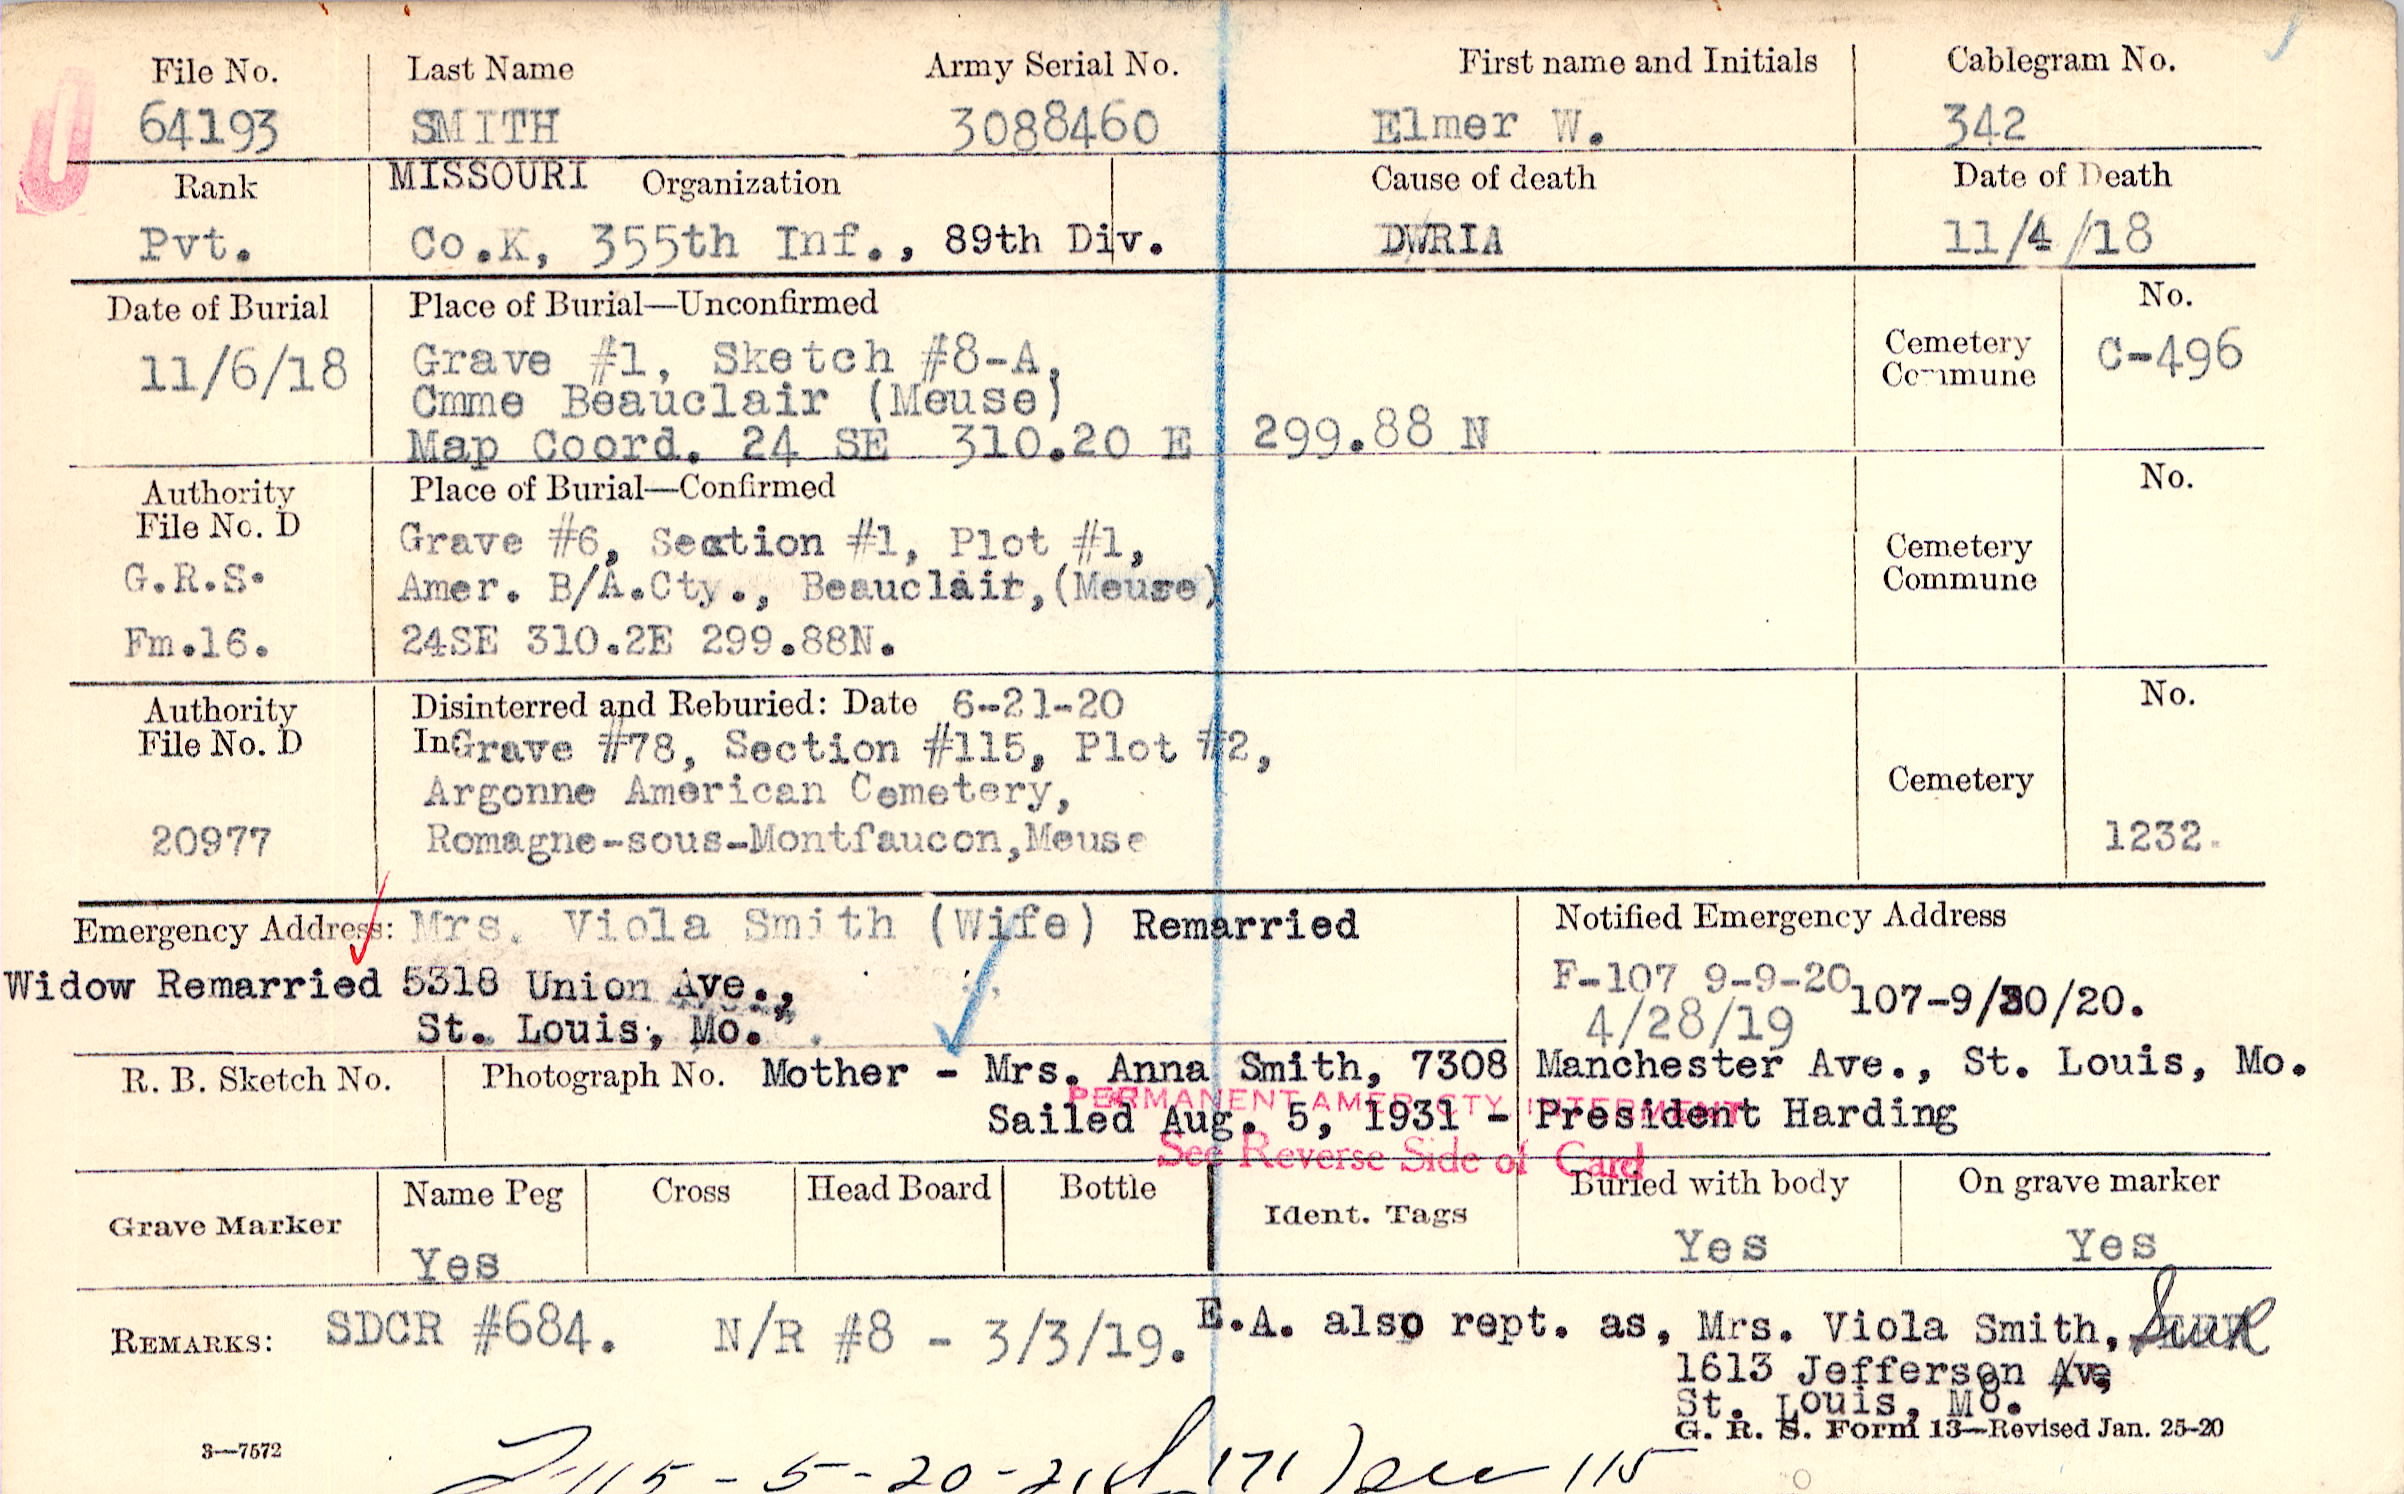 File No. Last Name Army Serial No. First name and Initials Cablegram No.
64193 SMITH 3088460 Elmer W. 342
Rank MISSOURI Organization Cause of death Date of Death
Pvt. Co.K, 355th Inf., 89th Div. DWRIA 11/4/18
Date of Burial Place of Burial—Unconfirmed No.
11/6/18 Grave #1, Sketch #8-A, Cemetery C-496
Cmme Beauclair (Meuse) Commune
Map Coord. 24 SE 310.20 E 299.88 N
Authority Place of Burial—Confirmed No.
File No. D Grave #6, Section #1, Plot #1, Cemetery
G.R.S. Amer. B/A.Cty., Beauclair,(Meuse) Commune
Fm.16. 24SE 310.2E 299.88N.
Authority Disinterred and Reburied: Date 6-21-20 No.
File No. D In Grave #78, Section #115, Plot #2,
Argonne American Cemetery, Cemetery
20977 Romagne-sous-Montfaucon,Meuse 1232.
Emergency Address: Mrs. Viola Smith (Wife) Remarried Notified Emergency Address
Widow Remarried 5318 Union Ave., F-107 9-9-20 107-9/30/20.
St. Louis, Mo. 4/28/19
R. B. Sketch No. Photograph No. Mother - Mrs. Anna Smith, 7308 Manchester Ave., St. Louis, Mo.
PERMANENT AMER CTY INTERMENT
Sailed Aug. 5, 1931 - President Harding
See Reverse Side of Card
Grave Marker Name Peg Cross Head Board Bottle Ident. Tags Buried with body On grave marker
Yes Yes Yes
REMARKS: SDCR #684. N/R #8 - 3/3/19. E.A. also rept. as, Mrs. Viola Smith,
1613 Jefferson Ave
St. Louis, Mo.
G. R. S. Form 13—Revised Jan. 25-20
3—7572
115